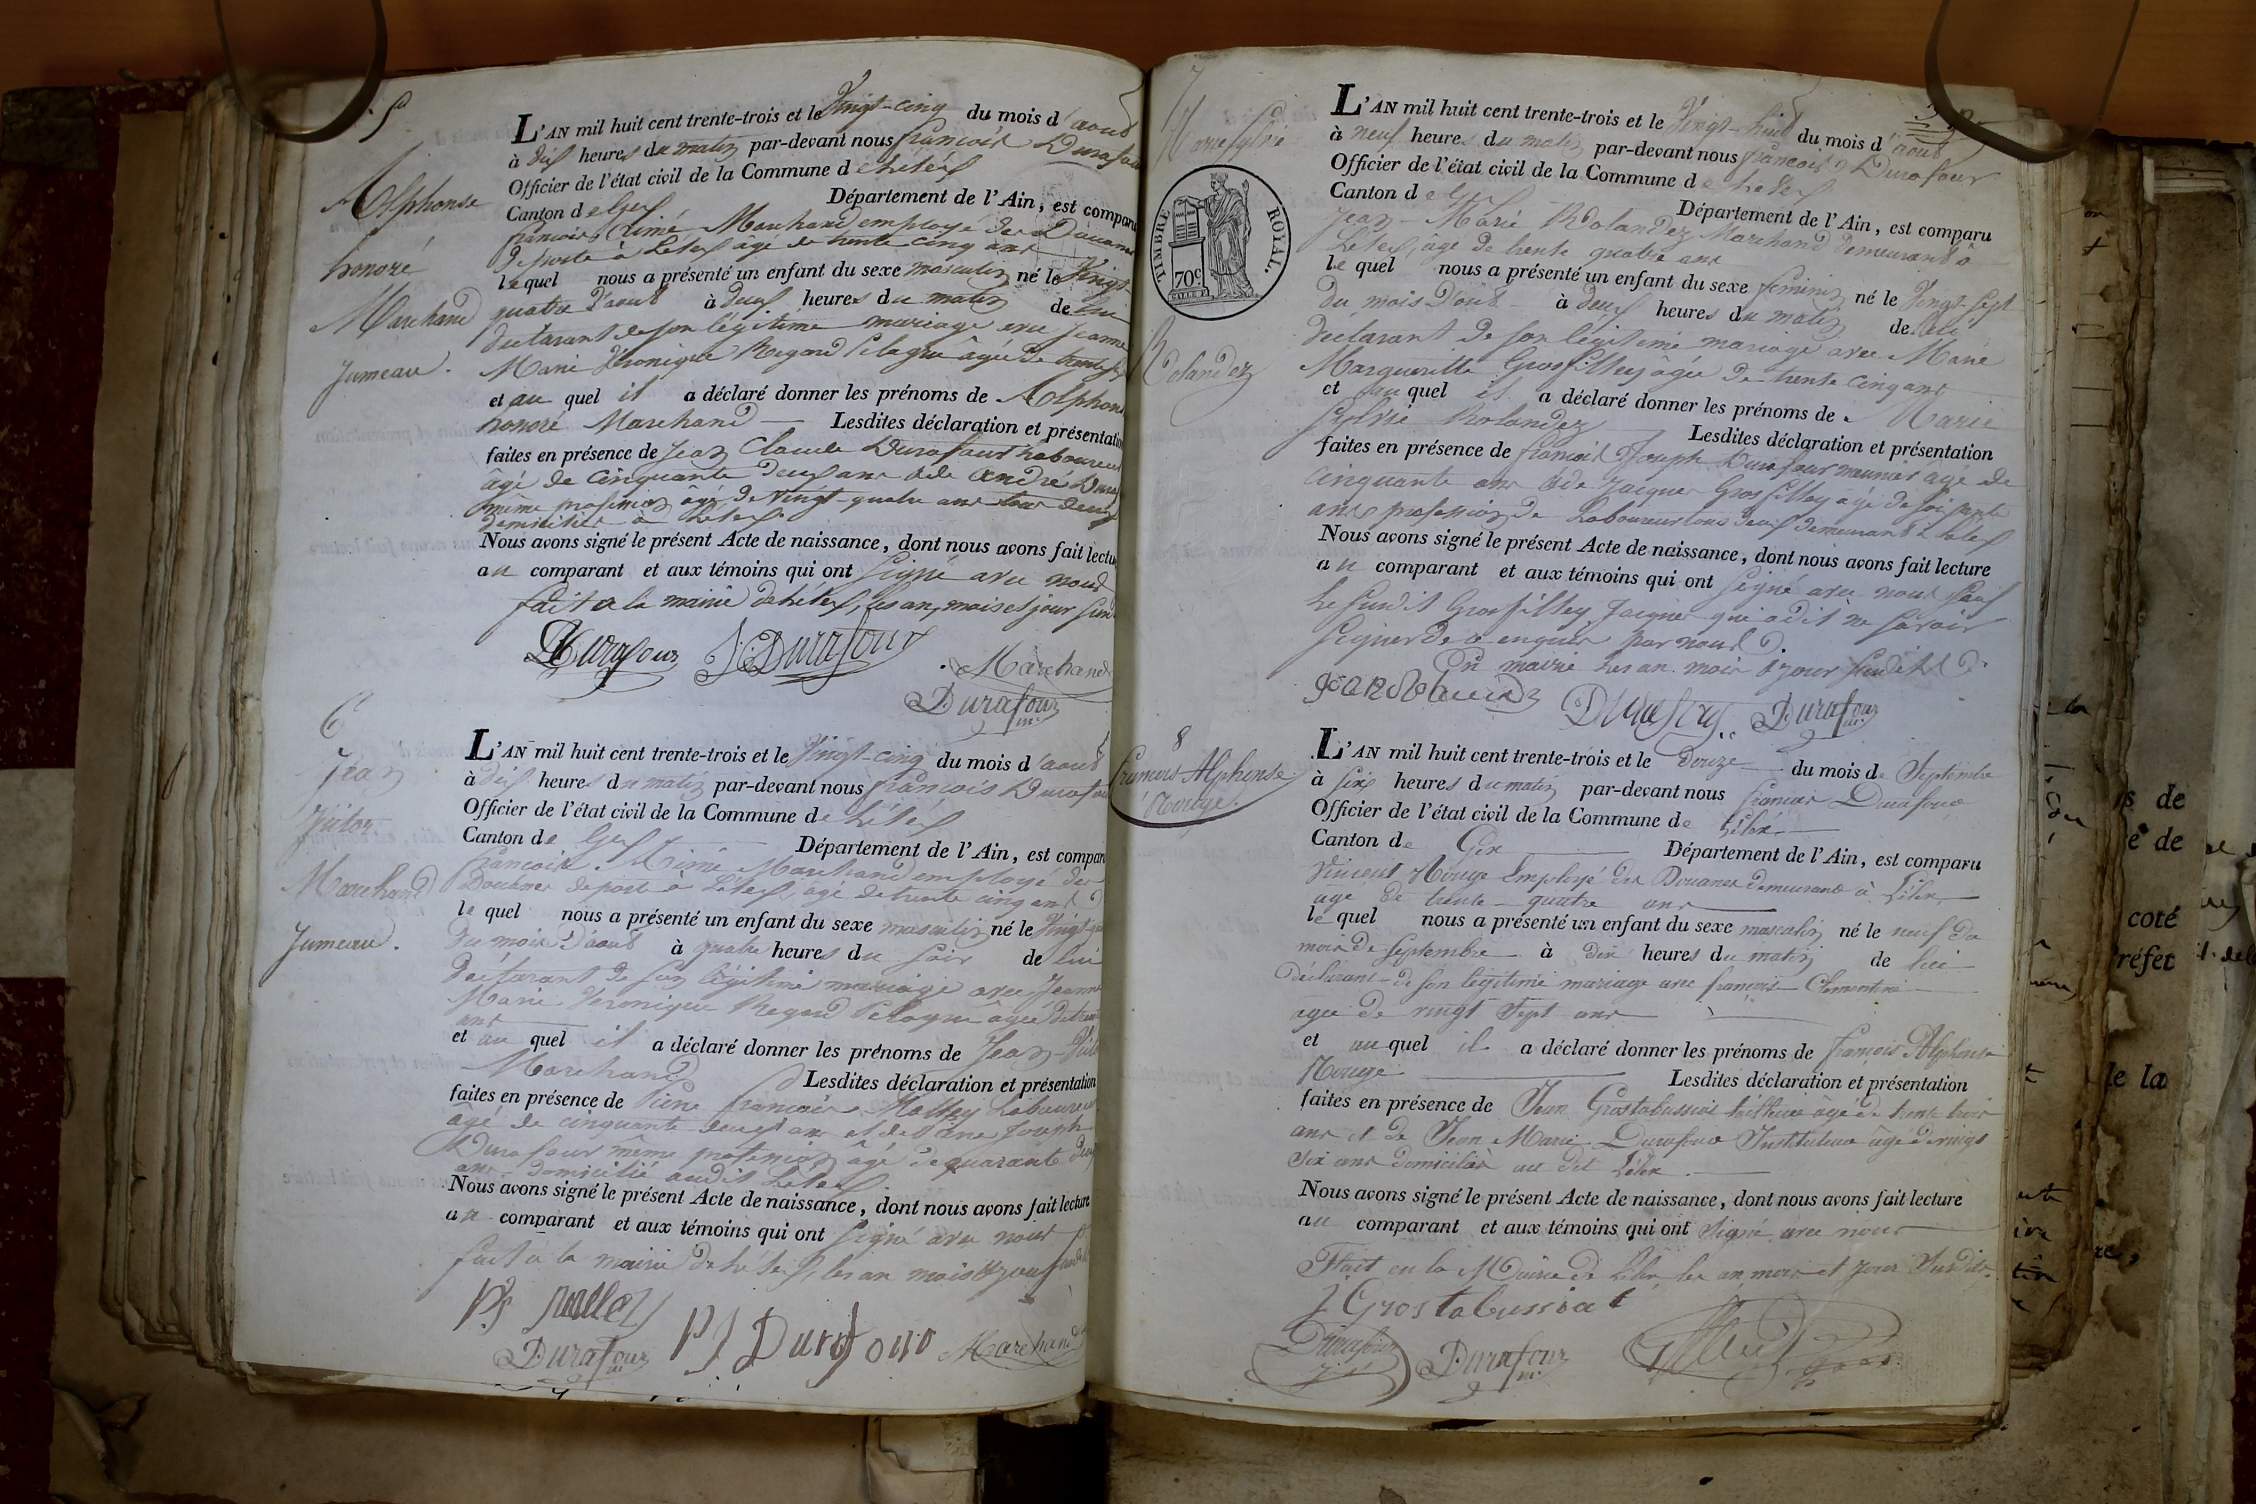 5
Alphonse
honoré
Marchand
Jumeau.
L'AN mil huit cent trente-trois et le Vingt-cinq du mois d'aout
à dix heures du matin par-devant nous francois Durafour
Officier de l'état civil de la Commune de Lélex
Canton de Gex Département de l'Ain, est comparu
francois Aimé Marchand employé des Douanes
de poste à Lélex âgé de trente cinq ans
lequel nous a présenté un enfant du sexe masculin né le Vingt
quatre d'aout à deux heures du matin de lui
déclarant de son légitime mariage avec Jeanne
Marie Véronique Regard Pelagrue âgée de trente
et au quel il a déclaré donner les prénoms de Alphonse
honoré Marchand Lesdites déclaration et présentation
faites en présence de Jean Claude Durafour Laboureur
âgé de cinquante deux ans & de André Dura
même profession âgé de Vingt-quatre ans tous deux
domiciliés à Lélex
Nous avons signé le présent Acte de naissance, dont nous avons fait lecture
au comparant et aux témoins qui ont signé avec nous
fait à la mairie de Lélex, les an, mois et jour susd
Durafour J: Durafour
Marchand
Durafour
m.
6
Jean
Victor
Marchand
Jumeau.
L'AN mil huit cent trente-trois et le Vingt-cinq du mois d'aout
à dix heures du matin par-devant nous francois Durafour
Officier de l'état civil de la Commune de Lélex
Canton de Gex Département de l'Ain, est comparu
francois Aimé Marchand employé des
Douanes de poste à Lélex, âgé de trente cinq ans
lequel nous a présenté un enfant du sexe masculin né le Vingt
du mois d'aout à quatre heures du soir de lui
déclarant de son légitime mariage avec Jeanne
Marie Véronique Regard Pelagrue âgée de trente
ans
et au quel il a déclaré donner les prénoms de Jean
Marchand Lesdites déclaration et présentation
faites en présence de Pierre francois Mallay Laboureur
âgé de cinquante deux ans et de Pierre Joseph
Durafour même profession âgé de quarante deux
ans domicilié audit Lélex
Nous avons signé le présent Acte de naissance, dont nous avons fait lecture
au comparant et aux témoins qui ont signé avec nous
fait à la mairie de Lélex, les an mois & jour
Durafour PJ Durafour Marchand
m.
7
Marie Sylvie
TIMBRE ROYAL.
70c
Rolandez
L'AN mil huit cent trente-trois et le Vingt-huit du mois d'aout
à neuf heures du matin par-devant nous francois Durafour
Officier de l'état civil de la Commune de Lélex
Canton de Gex Département de l'Ain, est comparu
Jean-Marie Rolandez Marchand demeurant à
Lélex, âgé de trente quatre ans
lequel nous a présenté un enfant du sexe feminin né le Vingt-sept
du mois d'aout à deux heures du matin de lui
déclarant de son légitime mariage avec Marie
Marguerite Grosfilley âgée de trente cinq ans
et au quel il a déclaré donner les prénoms de Marie
Sylvie Rolandez Lesdites déclaration et présentation
faites en présence de francois Joseph Durafour meunier âgé de
cinquante ans & de Jacques Grosfilley âgé de soixante
ans profession de Laboureur tous deux demeurant à Lélex
Nous avons signé le présent Acte de naissance, dont nous avons fait lecture
au comparant et aux témoins qui ont signé avec nous sauf
le susdit Grosfilley Jacques qui a dit ne savoir
signer de ce enquis par nous.
En mairie les an mois & jour susdits
Durafour Durafour
m.
8
francois Alphonse
Rouge.
L'AN mil huit cent trente-trois et le douze du mois de Septembre
à six heures du matin par-devant nous francois Durafour
Officier de l'état civil de la Commune de Lélex
Canton de Gex Département de l'Ain, est comparu
Vincent Rouge Employé des Douanes demeurant à Lélex
âgé de trente-quatre ans
lequel nous a présenté un enfant du sexe masculin né le neuf du
mois de Septembre à dix heures du matin de lui
déclarant de son légitime mariage avec francois Clementine
agée de vingt Sept ans
et au quel il a déclaré donner les prénoms de francois Alphonse
Rouge Lesdites déclaration et présentation
faites en présence de Jean Grostabussiat âgé de trente trois
ans et de Jean Marie Durafour Instituteur âgé de vingt
six ans domiciliés au dit Lélex
Nous avons signé le présent Acte de naissance, dont nous avons fait lecture
au comparant et aux témoins qui ont signé avec nous
Fait en la Mairie de Lélex les an, mois et jour Susdits.
J Grostabussiat
Durafour Durafour
m.
is de
e de
coté
réfet
de la